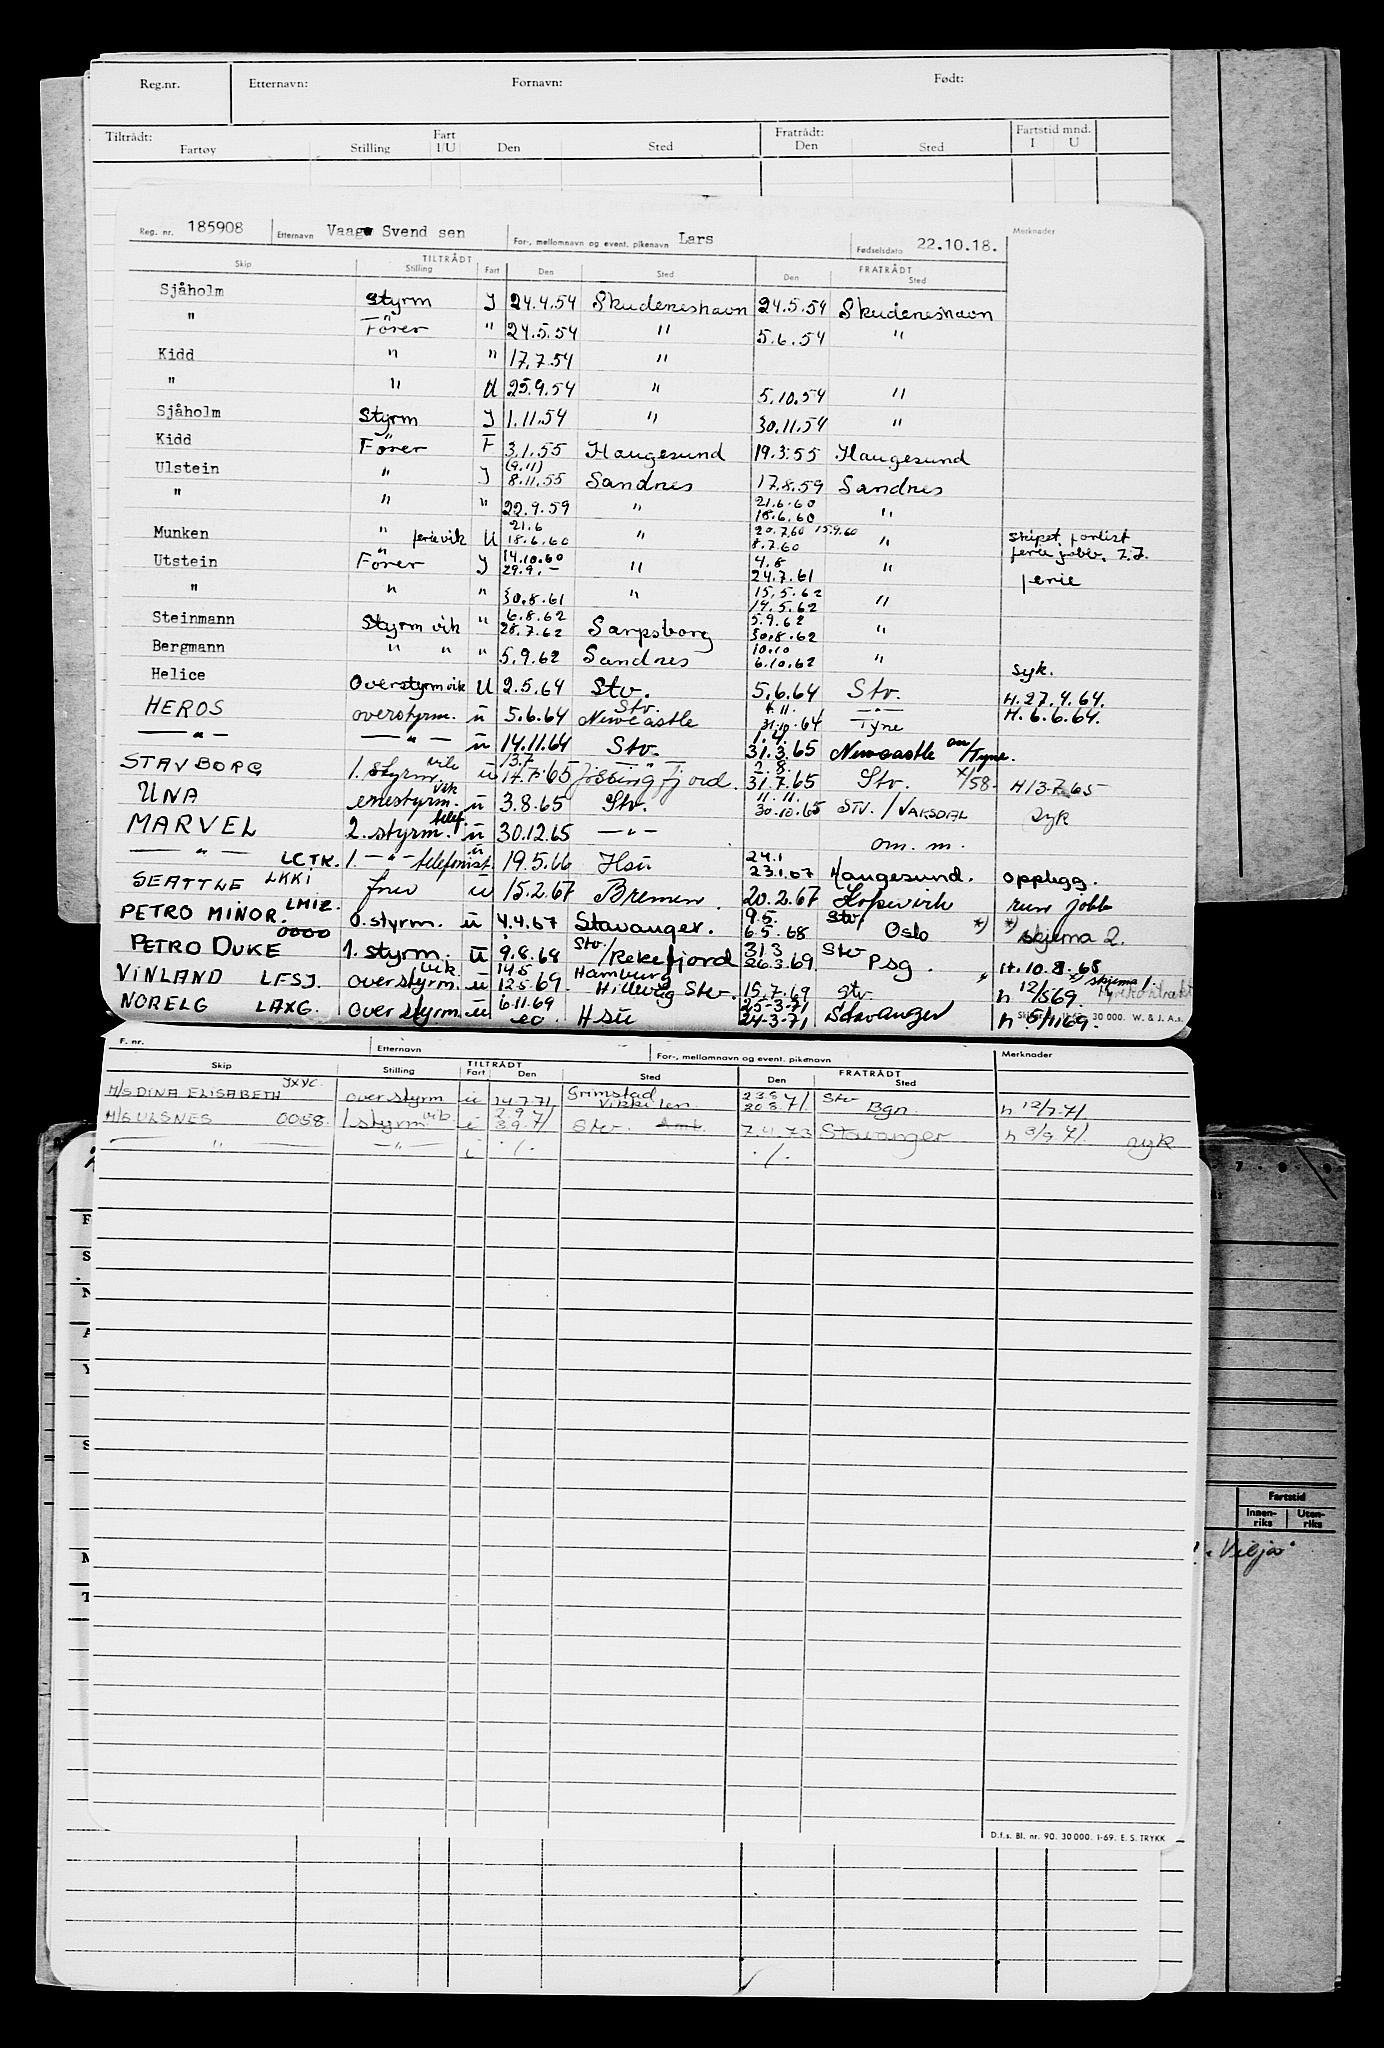 Reg.nr. Etternavn: Fornavn: Født:
Tiltrådt: Fart Fratrådt: Fartstid mnd.
Fartøy Stilling I/U Den Sted Den Sted I U
Reg. nr. 185908 Etternavn Vaage Svend sen For-, mellomnavn og event. pikenavn Lars Fødselsdato 22.10.18. Merknader
TILTRÅDT FRATRÅDT
Skip Stilling Fart Den Sted Den Sted
Sjåholm Styrm J 24.4.54 Skudeneshavn 24.5.54 Skudeneshavn
" Fører " 24.5.54 " 5.6.54 "
Kidd " " 17.7.54 "
" " U 25.9.54 " 5.10.54 "
Sjåholm Styrm J 1.11.54 " 30.11.54 "
Kidd Fører F 3.1.55 Haugesund 19.3.55 Haugesund
Ulstein " J (9.11) 8.11.55 Sandnes 17.8.59 Sandnes
" " " 22.9.59 " 21.6.60 18.6.60 "
Munken " ferievik U 21.6 18.6.60 " 20.7.60 15.9.60 8.7.60 " skipet forlist
Utstein Fører J 14.10.60 29.9.– " 4.8 24.7.61 " ferie
" " " 30.8.61 " 15.5.62 14.5.62 "
Steinmann Styrm vik " 6.8.62 28.7.62 Sarpsborg 5.9.62 30.8.62 "
Bergmann " " " 5.9.62 Sandnes 10.10 6.10.62 " syk.
Helice Overstyrm vik U 2.5.64 Stv. 5.6.64 Stv. H.27.4.64.
HEROS overstyrm. u 5.6.64 Stv. Newcastle 4.11. 31.10.64 Tyne H.6.6.64.
—"— —"— u 14.11.64 Stv. 1.4. 31.3.65 Newcastle on/Tyne.
STAVBORG 1. styrm. vik u 13.7 14.7.65 Jøssingfjord. 2.8. 31.7.65 Stv. x/58. H13.7.65
UNA enestyrm. vik u 3.8.65 Stv. 11.11. 30.10.65 STV./VAKSDAL syk
MARVEL 2. styrm. telef. u 30.12.65 —"— om. m.
—"— LCTK. 1. —"— telefonist. u 19.5.66 Hsu 24.1 23.1.67 Haugesund. opplegg.
SEATTLE LKKI u 15.2.67 Bremen. 20.2.67 Kopervik run jobb
PETRO MINOR. LMIZ. o.styrm. u 4.4.67 Stavanger. 9.5. 6.5.68 Stv Oslo *) *) skjema 2.
PETRO DUKE 0000 1. styrm. u 9.8.68 Stv./Rekefjord 31.3 26.3.69. Stv Psg. H.10.8.68
VINLAND LFSJ. overstyrm. vik. u 14.5 12.5.69. Hamburg Hillevåg Stv. 15.7.69 Stv. " h 12/5 69. *) skjema 1.
NORELG LAXG. overstyrm. u 6.11.69 eo. Hsu 25-3-71 24-3-71 Stavanger h 6/11 69.
30 000. W. & J. A.s.
F. nr. Etternavn For-, mellomnavn og event. pikenavn Merknader
TILTRÅDT FRATRÅDT
Skip Stilling Fart Den Sted Den Sted
M/S DINA ELISABETH JXYC. overstyrm u 14.7.71. Grimstad Vikkilen. 23.8 20.8.71. Stv Bgn. h 12/7 71.
M/S ULSNES 0058. 1 styrm. vik i 2.9.71 3.9.71 Stv. 7.4.73 Stavanger h 3/9 71. syk
—"— —"— i ./. ./.
D.f.s. Bl. nr. 90. 30 000. 1-69. E. S. TRYKK
Fartstid
Innen-riks Uten-riks